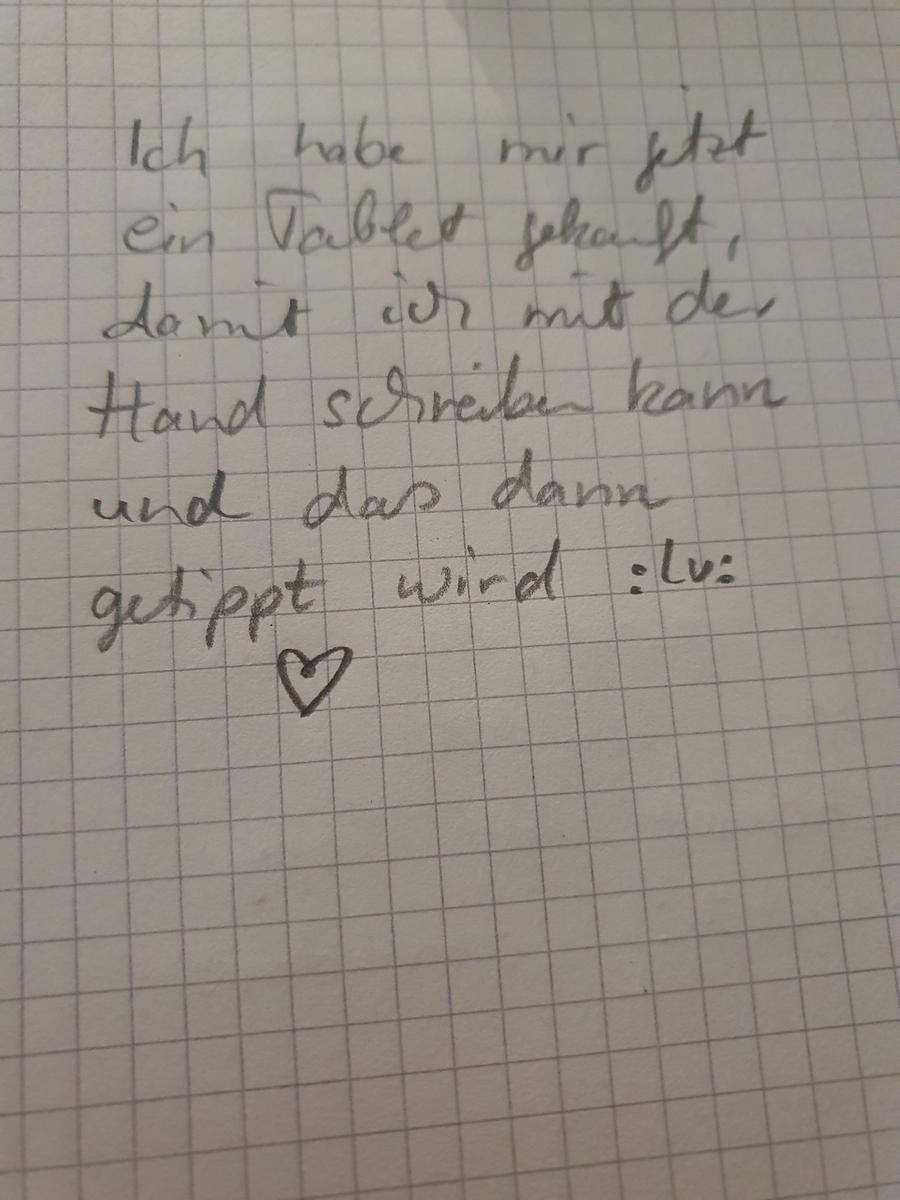 Ich habe mir jetzt
ein Tablet gekauft,
damit ich mit der
Hand schreiben kann
und das dann
getippt wird :lv:
♡